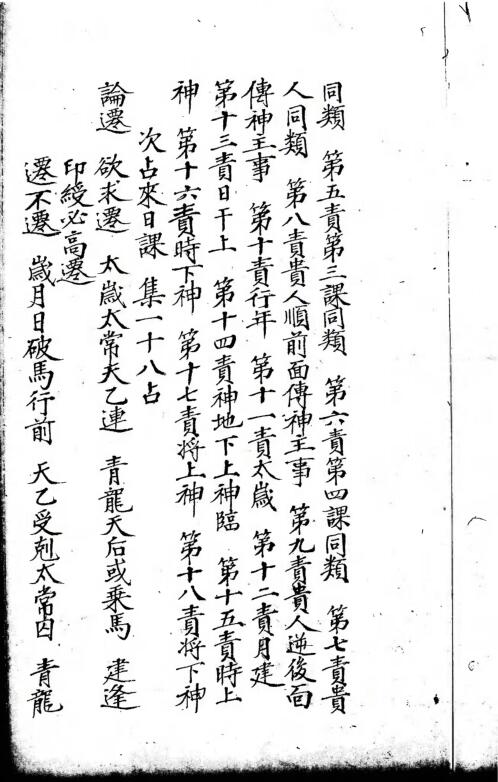 同類　第五責第三課同類　第六責第四課同類　第七責貴
人同類　第八責貴人順前面傳神主事　第九責貴人逆後面
傳神主事　第十責行年　第十一責太歲　第十二責月建
第十三責日干上　第十四責神地下上神臨　第十五責時上
神　第十六責時下神　第十七責將上神　第十八責將下神
次占來日課　集一十八占
論遷　欲求遷　太歲太常天乙連　青龍天后或乘馬　建逢
印綬必高遷
遷不遷　歲月日破馬行前　天乙受剋太常囚　青龍